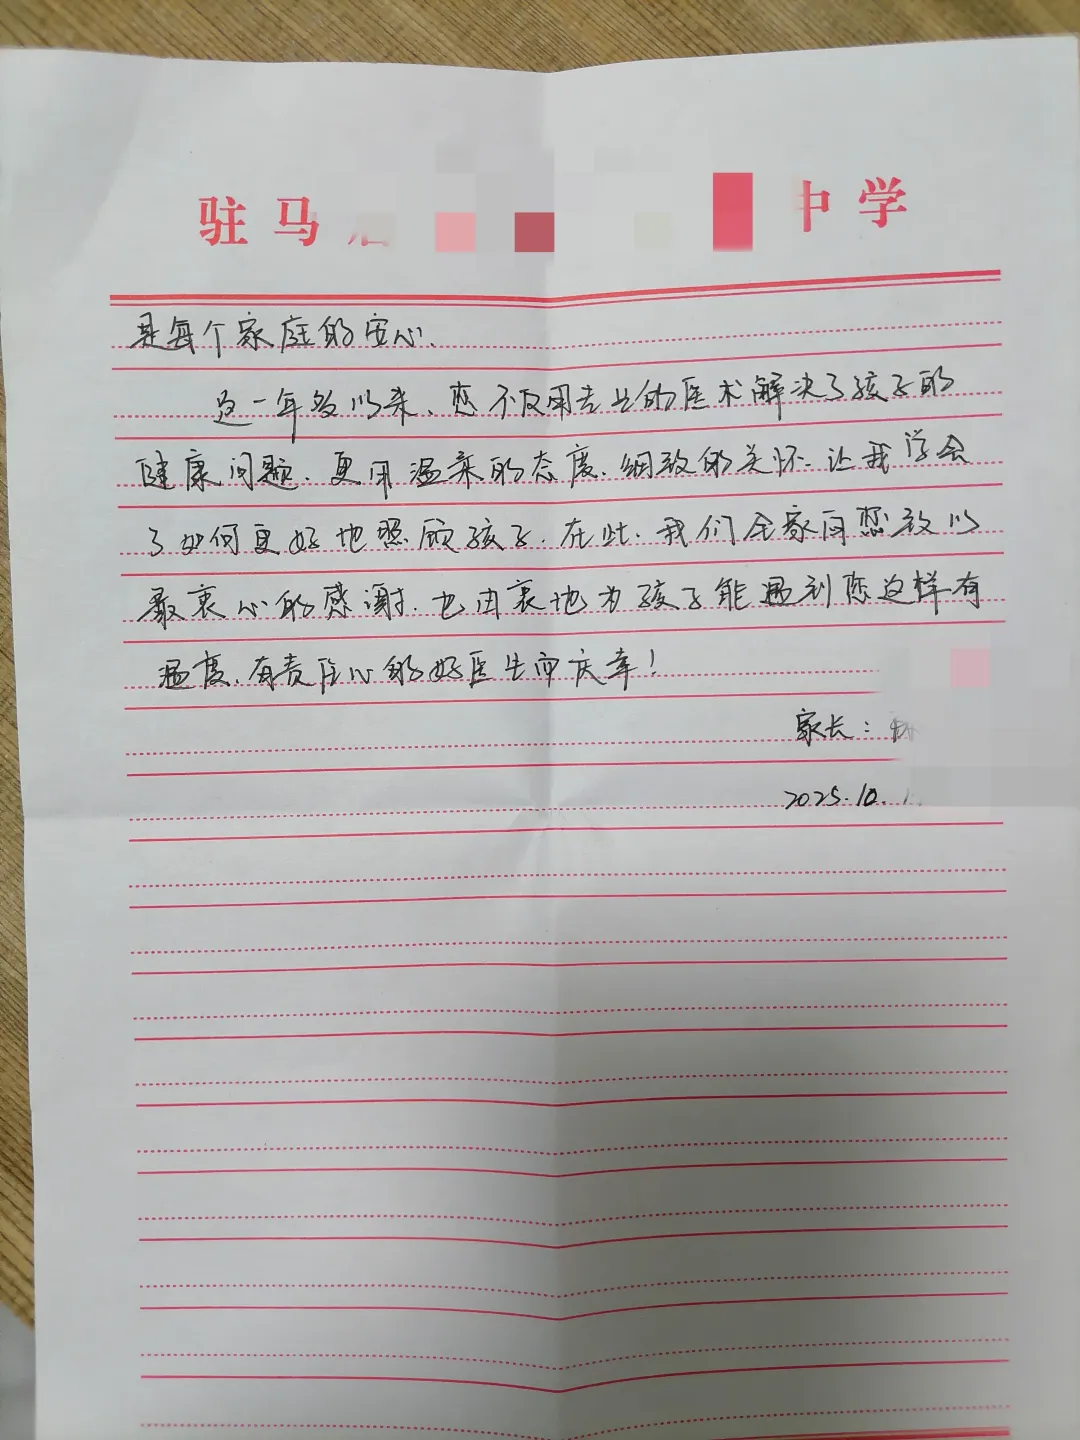 驻马 中学
是每个家庭的安心.
这一年多以来、您不仅用专业的医术解决了孩子的
健康问题、更用温柔的态度、细致的关怀、让我学会
了如何更好地照顾孩子.在此、我们全家向您致以
最衷心的感谢.也由衷地为孩子能遇到您这样有
温度、有责任心的好医生而庆幸!
家长:
2025.10.